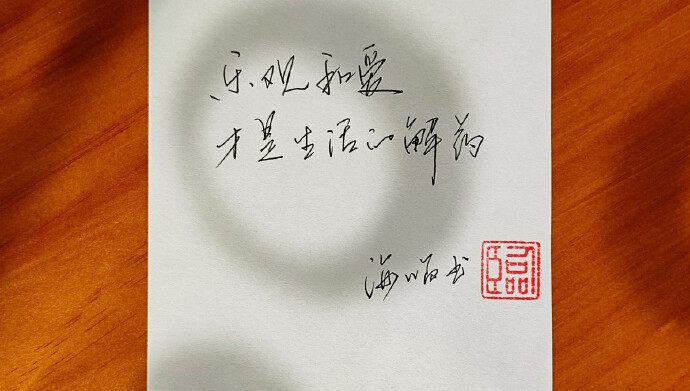 乐观和爱
才是生活的解药
海顺书